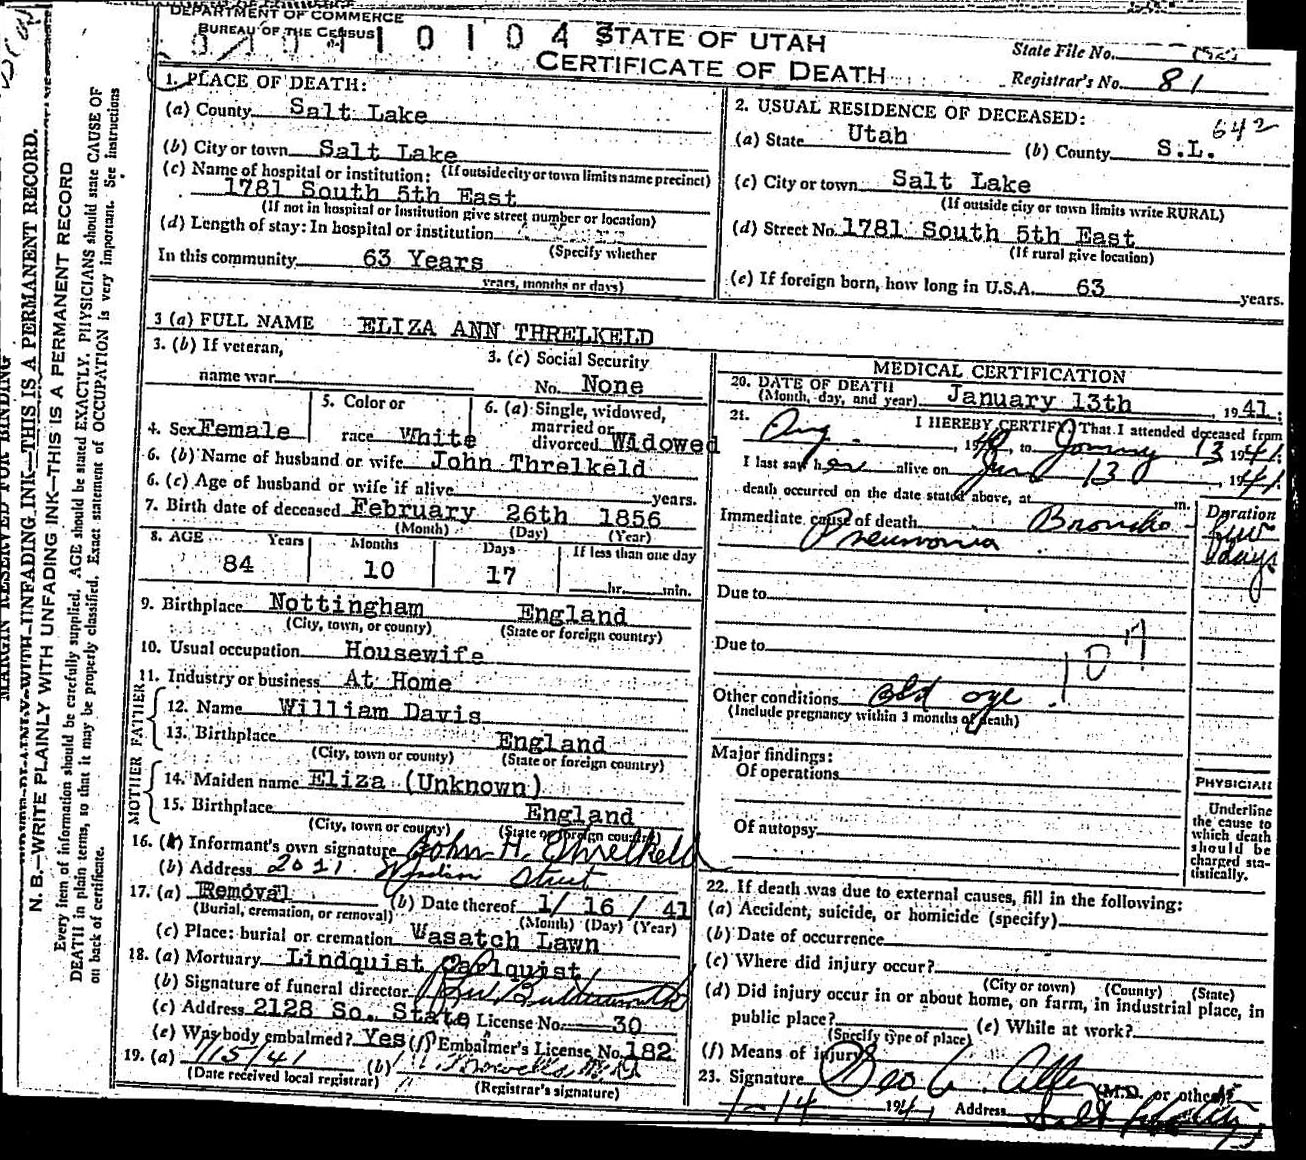 DEPARTMENT OF COMMERCE
BUREAU OF THE CENSUS
STATE OF UTAH
CERTIFICATE OF DEATH
State File No.
Registrar's No. 81
MARGIN RESERVED FOR BINDING
N. B.—WRITE PLAINLY WITH UNFADING INK—THIS IS A PERMANENT RECORD.
N. B.—WRITE PLAINLY WITH UNFADING INK—THIS IS A PERMANENT RECORD
Every item of information should be carefully supplied. AGE should be stated EXACTLY. PHYSICIANS should state CAUSE OF
DEATH in plain terms, so that it may be properly classified. Exact statement of OCCUPATION is very important. See instructions
on back of certificate.
1. PLACE OF DEATH:
(a) County Salt Lake
(b) City or town Salt Lake
(If outside city or town limits name precinct)
(c) Name of hospital or institution:
1781 South 5th East
(If not in hospital or institution give street number or location)
(d) Length of stay: In hospital or institution
(Specify whether
In this community 63 Years
years, months or days)
2. USUAL RESIDENCE OF DECEASED:
642
(a) State Utah (b) County S.L.
(c) City or town Salt Lake
(If outside city or town limits write RURAL)
(d) Street No. 1781 South 5th East
(If rural give location)
(e) If foreign born, how long in U.S.A. 63 years.
3 (a) FULL NAME ELIZA ANN THRELKELD
3. (b) If veteran,
name war
3. (c) Social Security
No. None
4. Sex Female
5. Color or
race White
6. (a) Single, widowed,
married or
divorced Widowed
6. (b) Name of husband or wife John Threlkeld
6. (c) Age of husband or wife if alive years.
7. Birth date of deceased February 26th 1856
(Month) (Day) (Year)
8. AGE Years Months Days If less than one day
84 10 17 hr. min.
9. Birthplace Nottingham England
(City, town, or county) (State or foreign country)
10. Usual occupation Housewife
11. Industry or business At Home
FATHER
12. Name William Davis
13. Birthplace England
(City, town or county) (State or foreign country)
MOTHER
14. Maiden name Eliza (Unknown)
15. Birthplace England
(City, town or county) (State or foreign country)
16. (a) Informant's own signature John H. Threlkeld
(b) Address 2021 Street
17. (a) Removal (b) Date thereof 1/ 16 / 41
(Burial, cremation, or removal) (Month) (Day) (Year)
(c) Place: burial or cremation Wasatch Lawn
18. (a) Mortuary Lindquist Carlquist
(b) Signature of funeral director
(c) Address 2128 So. State License No. 30
(e) Was body embalmed? Yes (f) Embalmer's License No. 182
19. (a) 1/15/41 (b)
(Date received local registrar) (Registrar's signature)
MEDICAL CERTIFICATION
20. DATE OF DEATH
(Month, day, and year) January 13th, 1941.
21. I HEREBY CERTIFY, That I attended deceased from
Aug. 1940, to January 13 1941.
I last saw her alive on Jan 13, 1941
death occurred on the date stated above, at m.
Immediate cause of death Broncho
Pneumonia
Duration
few
days
Due to
Due to
107
Other conditions old age
(Include pregnancy within 3 months of death)
Major findings:
Of operations
Of autopsy
PHYSICIAN
Underline
the cause to
which death
should be
charged sta-
tistically.
22. If death was due to external causes, fill in the following:
(a) Accident, suicide, or homicide (specify)
(b) Date of occurrence
(c) Where did injury occur?
(City or town) (County) (State)
(d) Did injury occur in or about home, on farm, in industrial place, in
public place? (e) While at work?
(Specify type of place)
(f) Means of injury
23. Signature Geo (M.D. or other)
1-14 1941 Address Salt Lake City